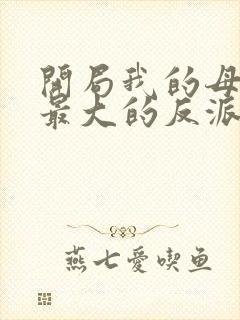 開局我的母
最大的反派
燕七愛喫鱼